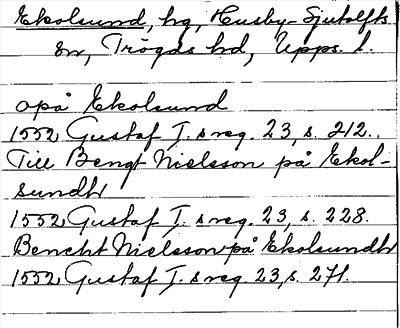 Ekolsund, hg, Husby-Sjutolfts
sn, Trögds hd, Upps. l.
opå Ekolsund
1552 Gustaf I. s reg. 23, s. 212.
Till Bengt Nielsson på Ekol-
sundh
1552 Gustaf I. s reg. 23, s. 228.
Bencht Nielsson på Ekolsundh
1552 Gustaf I. s reg. 23, s. 271.